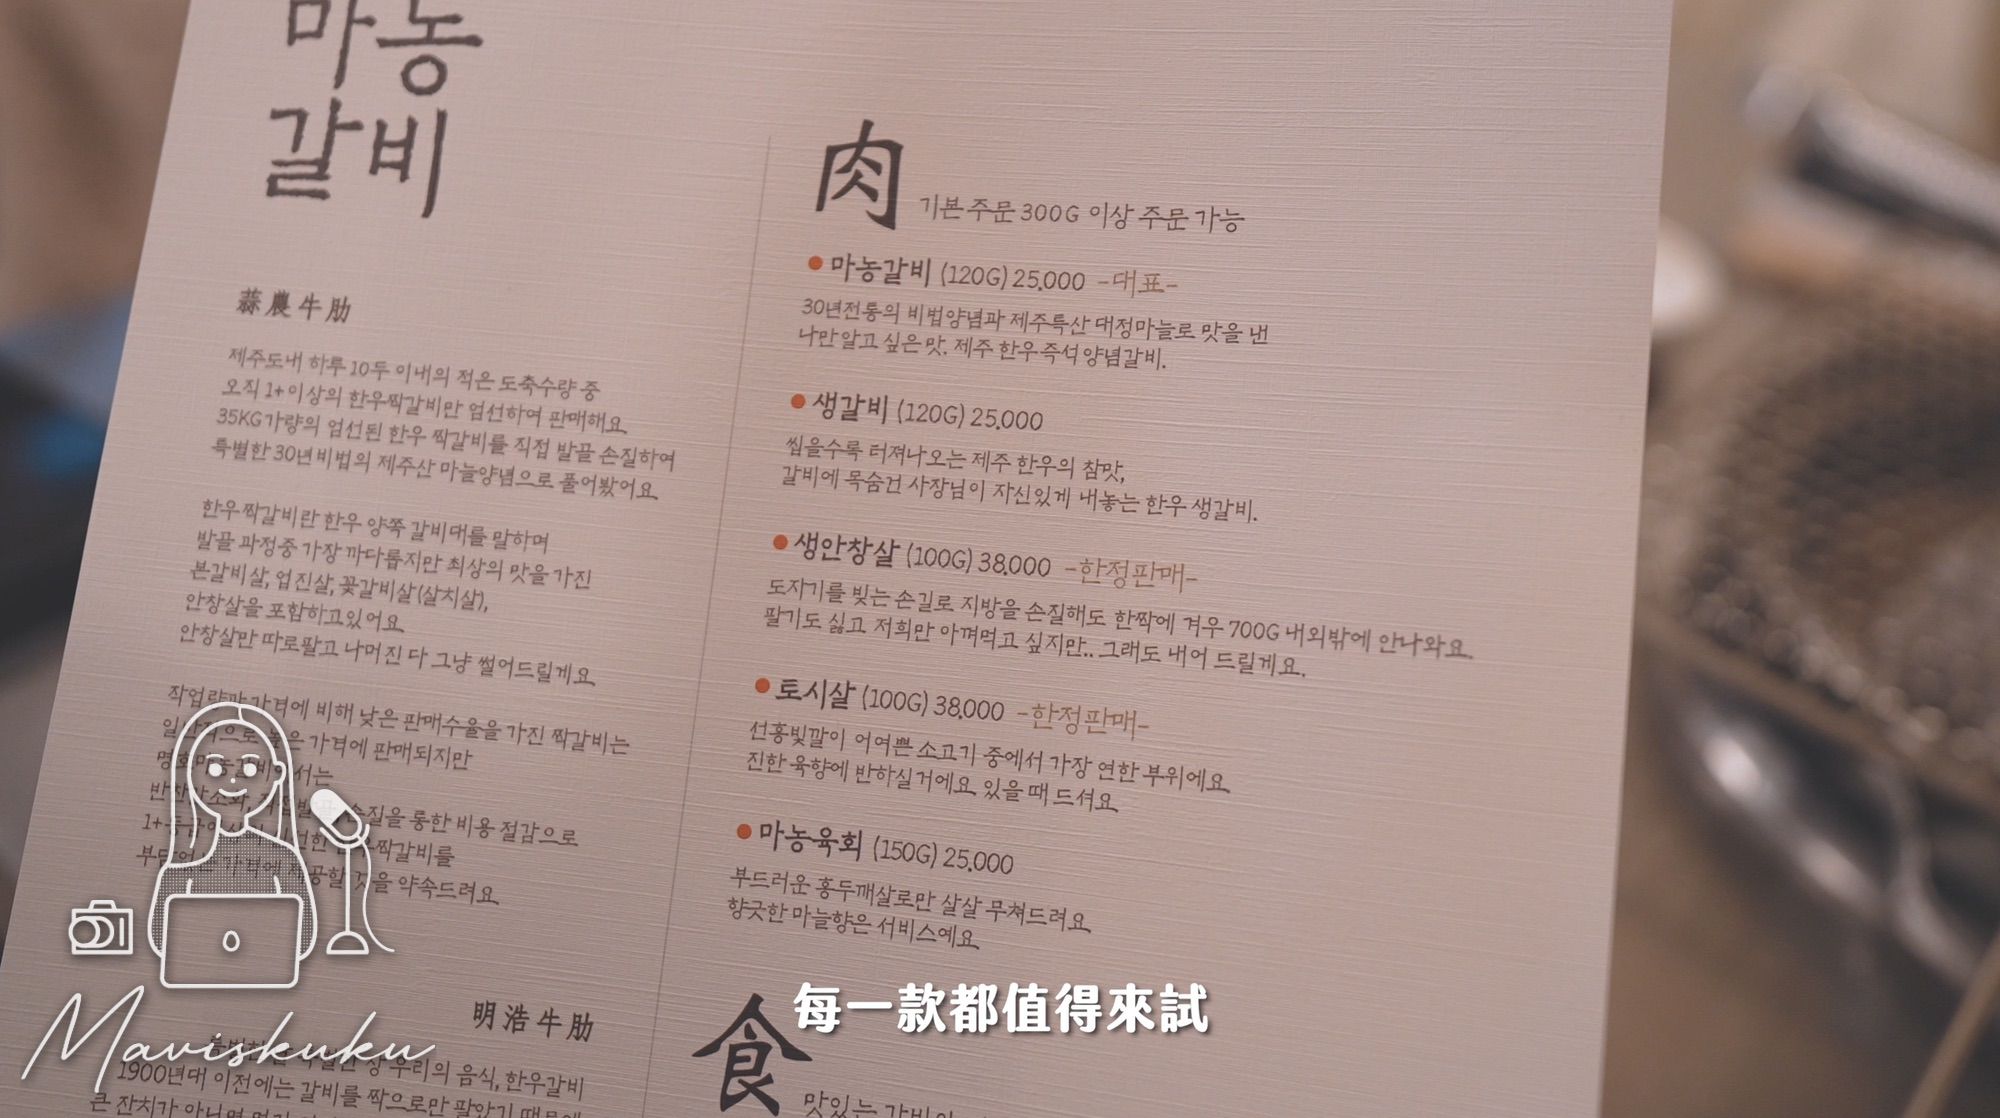 마농
갈비
蒜農牛肋
제주도내 하루 10두 이내의 적은 도축수량 중
오직 1+이상의 한우짝갈비만 엄선하여 판매해요.
35KG가량의 엄선된 한우 짝갈비를 직접 발골 손질하여
특별한 30년비법의 제주산 마늘양념으로 풀어봤어요.
한우짝갈비란 한우 양쪽 갈비대를 말하며
발골 과정중 가장 까다롭지만 최상의 맛을 가진
본갈비살, 업진살, 꽃갈비살(살치살),
안창살을 포함하고있어요.
안창살만 따로팔고 나머진 다 그냥 썰어드릴게요.
작업량과 가격에 비해 낮은 판매수율을 가진 짝갈비는
가격에 판매되지만
서는
손질을 통한 비용 절감으로
짝갈비를
가격에 제공할 것을 약속드려요.
明浩牛肋
우리의 음식, 한우갈비
1900년대 이전에는 갈비를 짝으로만 팔았기 때문에
큰 잔치가 아니면
肉 기본 주문 300G 이상 주문 가능
마농갈비 (120G) 25,000 -대표-
30년전통의 비법양념과 제주특산 대정마늘로 맛을 낸
나만 알고 싶은 맛. 제주 한우 즉석 양념갈비.
생갈비 (120G) 25,000
씹을수록 터져나오는 제주 한우의 참맛,
갈비에 목숨건 사장님이 자신있게 내놓는 한우 생갈비.
생안창살 (100G) 38,000 -한정판매-
도자기를 빚는 손길로 지방을 손질해도 한짝에 겨우 700G 내외밖에 안나와요.
팔기도 싫고 저희만 아껴먹고 싶지만.. 그래도 내어 드릴게요.
토시살 (100G) 38,000 -한정판매-
선홍빛깔이 어여쁜 소고기 중에서 가장 연한 부위에요.
진한 육향에 반하실거에요. 있을 때 드셔요.
마농육회 (150G) 25,000
부드러운 홍두깨살로만 살살 무쳐드려요.
향긋한 마늘향은 서비스예요.
食 맛있는 갈비와
每一款都值得來試
Maviskuku